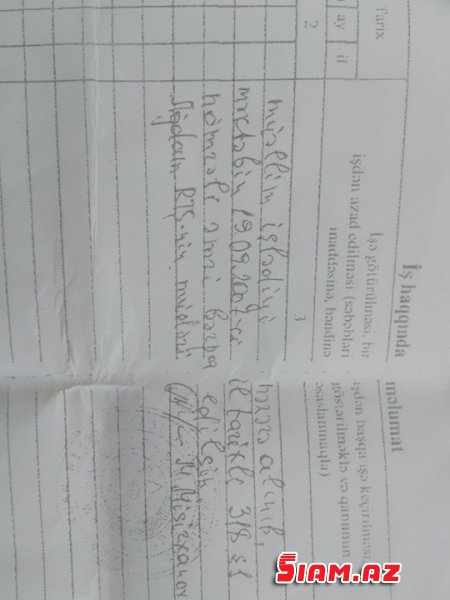 İş haqqında məlumat
Tarix
ay
il
İşə götürülməsi, bir işdən başqa işə keçirilməsi,
işdən azad edilməsi (səbəbləri göstərilməklə və qanunun
maddəsinə, bəndinə əsaslanmaqla)
2
3
müəllim işlədiyi nəzərə alınıb,
məktəbin 19.09.2007-ci il tarixli 318 §1
nömrəli əmri bərpa edilsin
Ağdam RTŞ-nin müdiri
SİAM.AZ